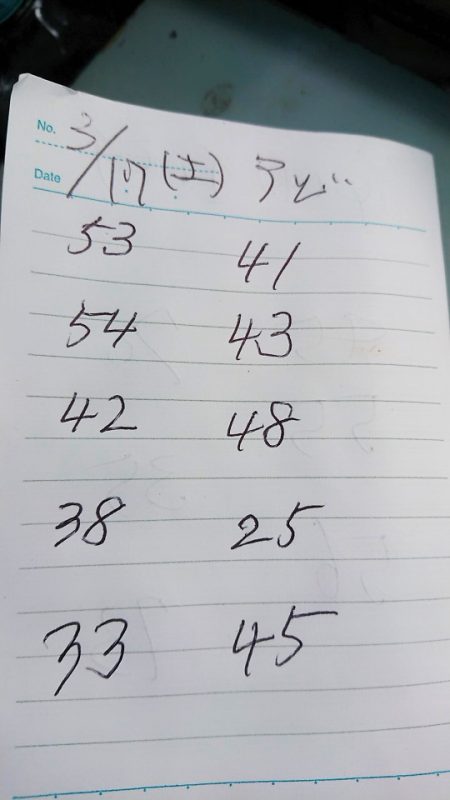 No. 3/17 (土) アジ
Date
53 41
54 43
42 48
38 25
33 45